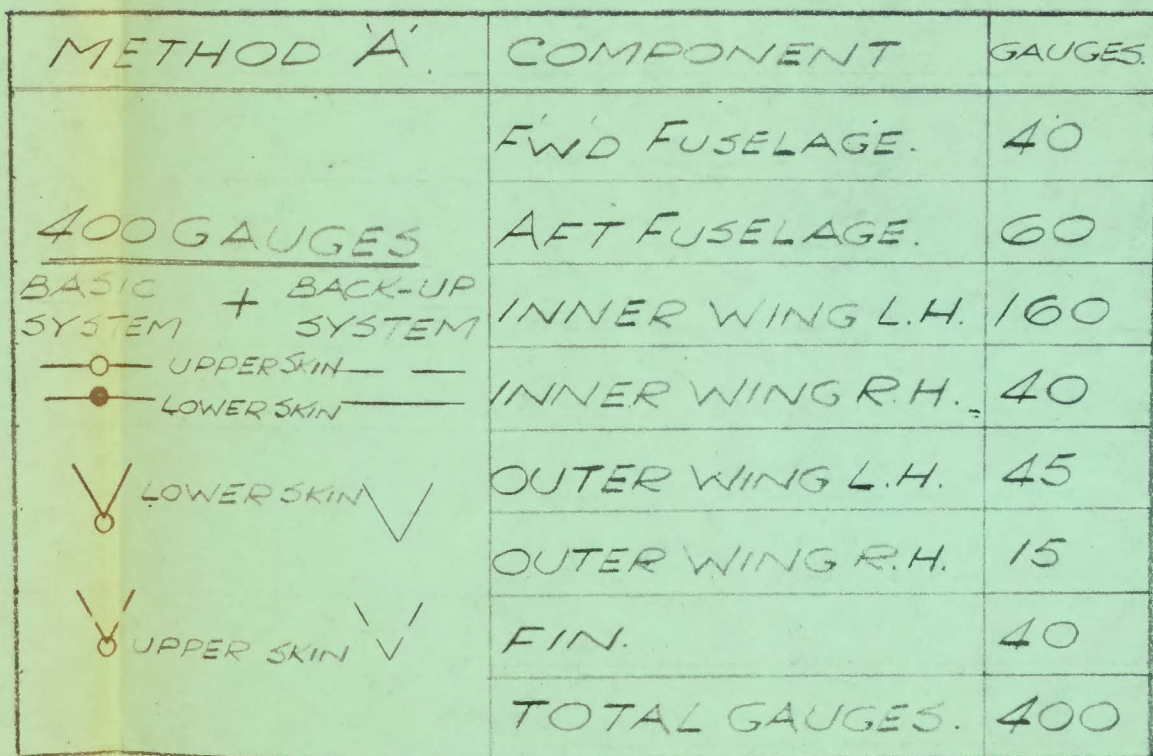 METHOD 'A'. COMPONENT GAUGES.
F'W'D FUSELAGE. 40
400 GAUGES
AFT FUSELAGE. 60
BASIC SYSTEM + BACK-UP SYSTEM
INNER WING L.H. 160
UPPER SKIN
LOWER SKIN
INNER WING R.H. 40
LOWER SKIN
OUTER WING L.H. 45
OUTER WING R.H. 15
UPPER SKIN
FIN. 40
TOTAL GAUGES. 400